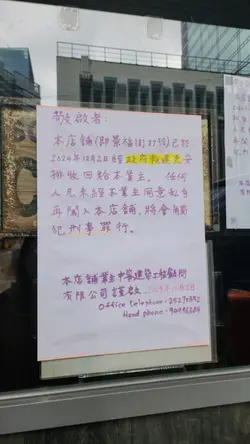 敬啟者:
本店舖(即景福街87號)已於
2024年12月2日經政府執達吏安
排收回給本業主。任何
人凡未經本業主同意私自
再闖入本店舖,將會觸
犯刑事罪行。
本店舖業主中華建築工程顧問
有限公司謹啟
Office telephone:
Hand phone: